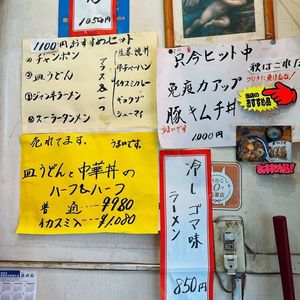 1050円
1100円おすすめセット
①チャンポン
②皿うどん
③ジャンキラーメン
④スーラータンメン
プラス
生姜焼丼
チャーハン
イカスミカレー
ギョウザ
シューマイ
売れてます。
うまいです
皿うどんと中華丼の
ハーフ&ハーフ
普通……¥980
イカスミ入……¥1,080
只今ヒット中
秋はこれだ
コロナに負けるな!
免疫力アップ
豚キムチ丼
うまいです
1000円
おすすめ品
冷しゴマ味
ラーメン
850円